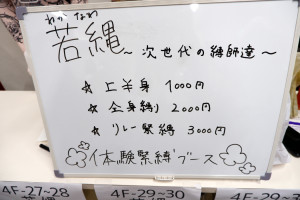 わか なわ
若縄
~ 次世代の縛師達 ~
☆ 上半身 1000円
☆ 全身縛り 2000円
☆ リレー緊縛 3000円
体験緊縛ブース
4F-27-28
4F-29-30
4F